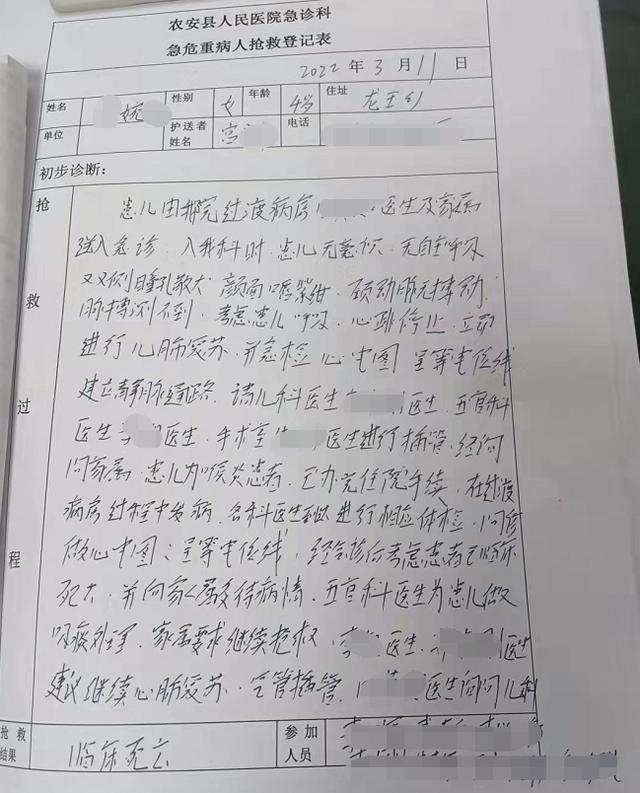 农安县人民医院急诊科
急危重病人抢救登记表
2022年3月11日
姓名 婉 性别 女 年龄 4岁 住址 龙王乡
单位 护送者姓名 宫 电话
初步诊断:
抢救过程
患儿由我院过渡病房 医生及家属
送入急诊．入我科时．患儿无意识．无自主呼吸
双侧瞳孔散大 颜面口唇紫绀．颈动脉无搏动，
脉搏测不到．考虑患儿呼吸，心跳停止．立即
进行心肺复苏．并急检 心电图 呈等电位线
建立静脉通路．请儿科医生 医生．五官科
医生 医生．手术室 医生进行插管．经询
问家属．患儿为喉炎患者．已办完住院手续．在过渡
病房过程中发病．各科医生 进行相应体检．
做心电图:呈等电位线，经会诊后考虑患者已临床
死亡．并向家人 交待病情．五官科医生为患儿做
吸痰处理．家属要求继续抢救． 医生． 医生
建议继续心肺复苏．气管插管． 医生询问儿科
抢救结果 临床死亡 参加人员